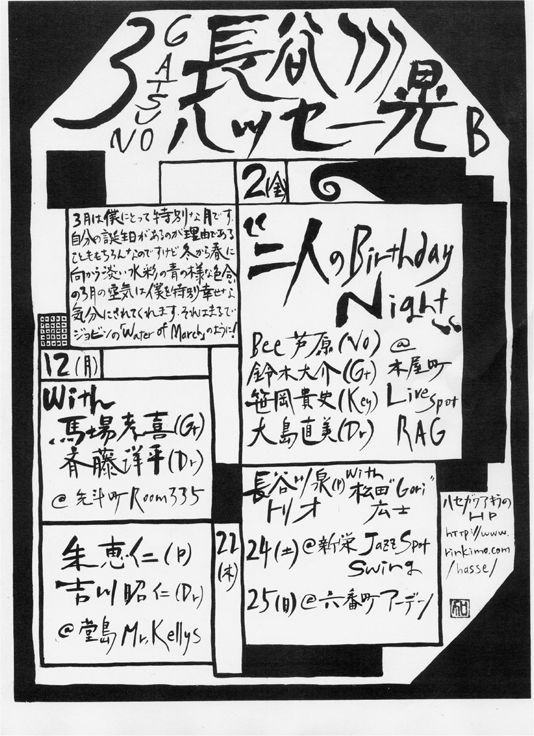 3 GATSU NO
長谷川
ハッセー晃 B
3月は僕にとって特別な月です。
自分の誕生日があるのが理由である
こともちろんなのですけど冬から春に
向かう淡い水彩の青の様な色合い
の3月の空気は僕を特別幸せな
気分にさせてくれます。それはまるで
ジョビンの「Water of March」のように!
2(金)
"二人のBirthday
Night"
Bee 芦原(Vo) @
鈴木大介(Gt) 木屋町
笹岡貴史(Key) Live Spot
大島直美(Dr) RAG
12(月)
With
馬場孝喜(Gt)
斉藤洋平(Dr)
@先斗町Room335
22(木)
朱恵仁(P)
吉川昭仁(Dr)
@堂島 Mr.Kellys
長谷川泉(P) with 松田"Gori"広士
トリオ
24(土)@新栄 Jazz Spot
Swing
25(日)@六番町アーデン
ハセガワアキラの
HP
http://www.
rinkimo.com
/hasse/